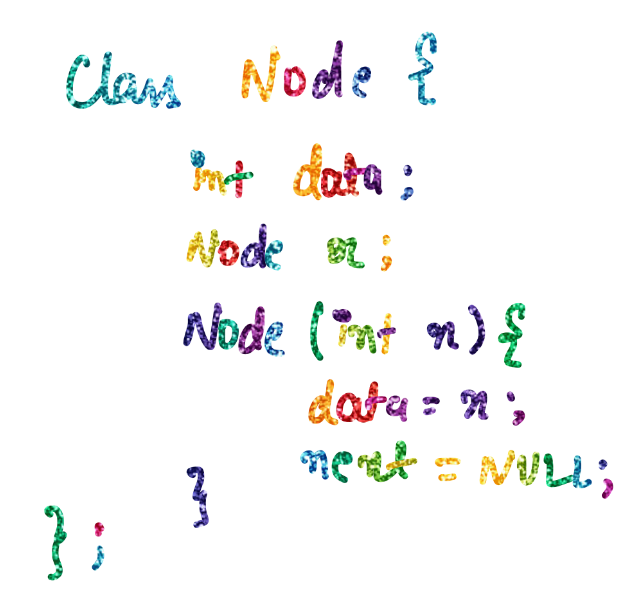 Class Node {
int data ;
Node x ;
Node (int n) {
data = n ;
next = NULL;
}
} ;